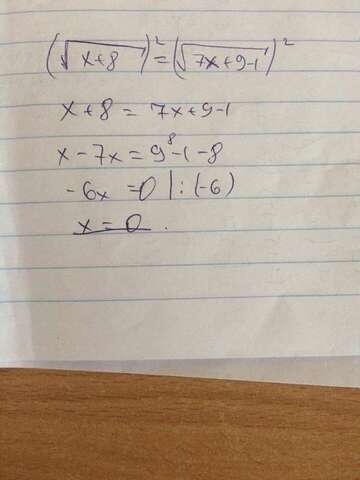 (√x+8)² = (√7x+9-1)²
x+8 = 7x+9-1
x-7x = 9-1-8
8
-6x = 0 |:(-6)
x = 0.